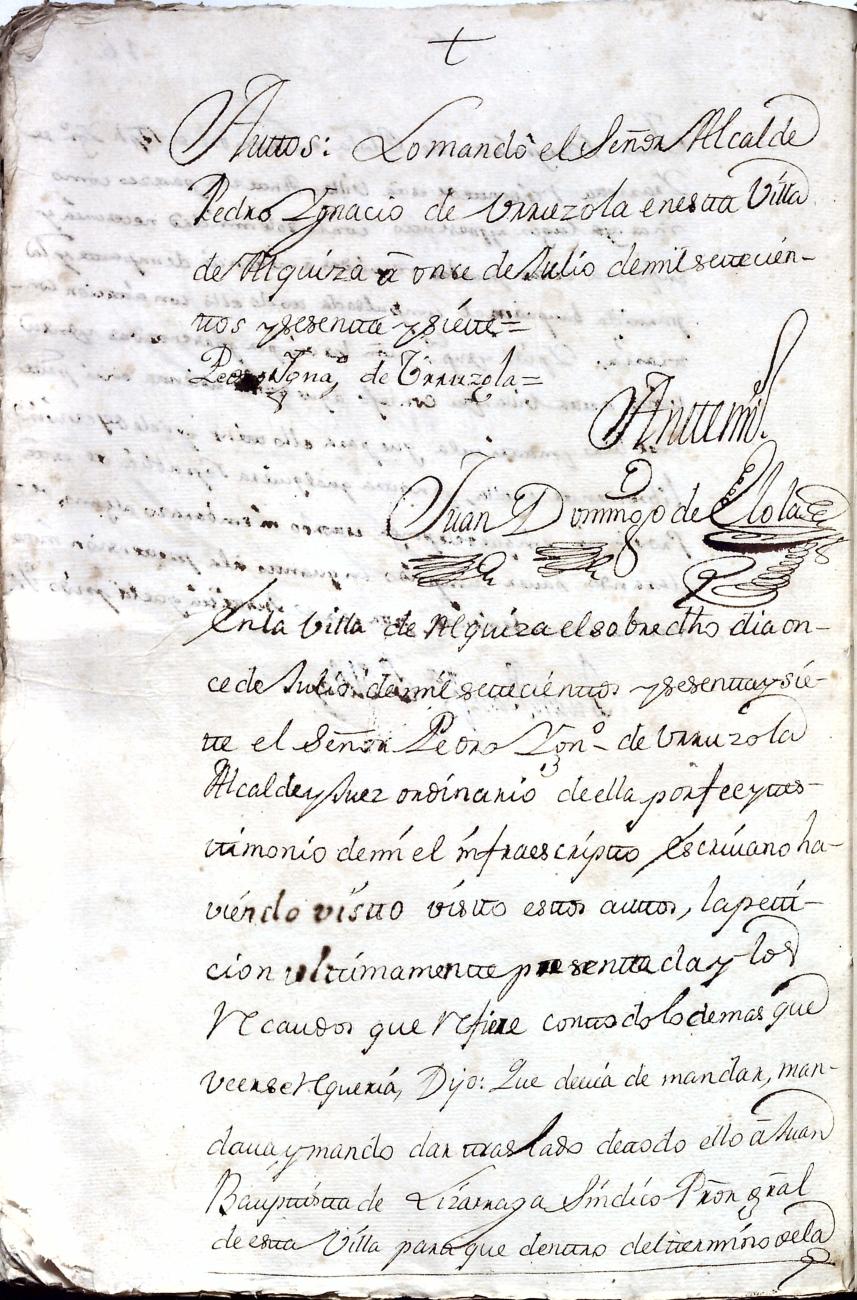 Auttos: Lo mandò el Señor Alcalde
Pedro Ygnacio de Urruzola en estta Villa
de Alquiza â onse de Julio de mil settecien-
ttos y sesentta y siette=
Pedro Ygnaº de Urruzola=
Anttemi
Juan Domingo de Ellola
En la Villa de Alquiza el sobredho dia on-
ce de Julio de mil settecienttos y sesentta y sie-
tte el Señor Pedro Ygnº de Urruzola
Alcalde y Juez ordinario de ella por fee y tes-
ttimonio de mi el infraescriptto Escrivano ha-
viendo visto visto esttos auttos, la petti-
cion ulttimamentte presenttada y los
Recaudos que Refiere con ttodo lo demas que
veerse Requeria, Dijo: Que devia de mandar, man-
dava y mando dar ttraslado de ttodo ello â Juan
Bauptistta de Lizarraga Sindico Pror gral
de estta Villa para que denttro del ttermino de la